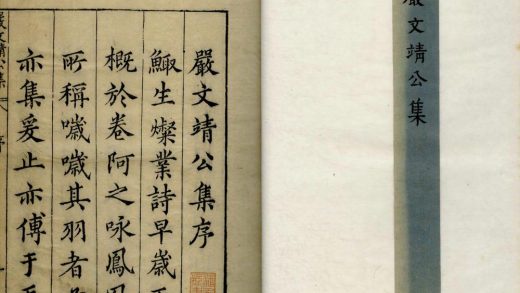 嚴文靖公集
嚴文靖公集序
鯫生燦業詩早歲
概於卷阿之咏鳳凰
所稱噦噦其羽者
亦集爰止亦傅于
嚴文靖公集 序